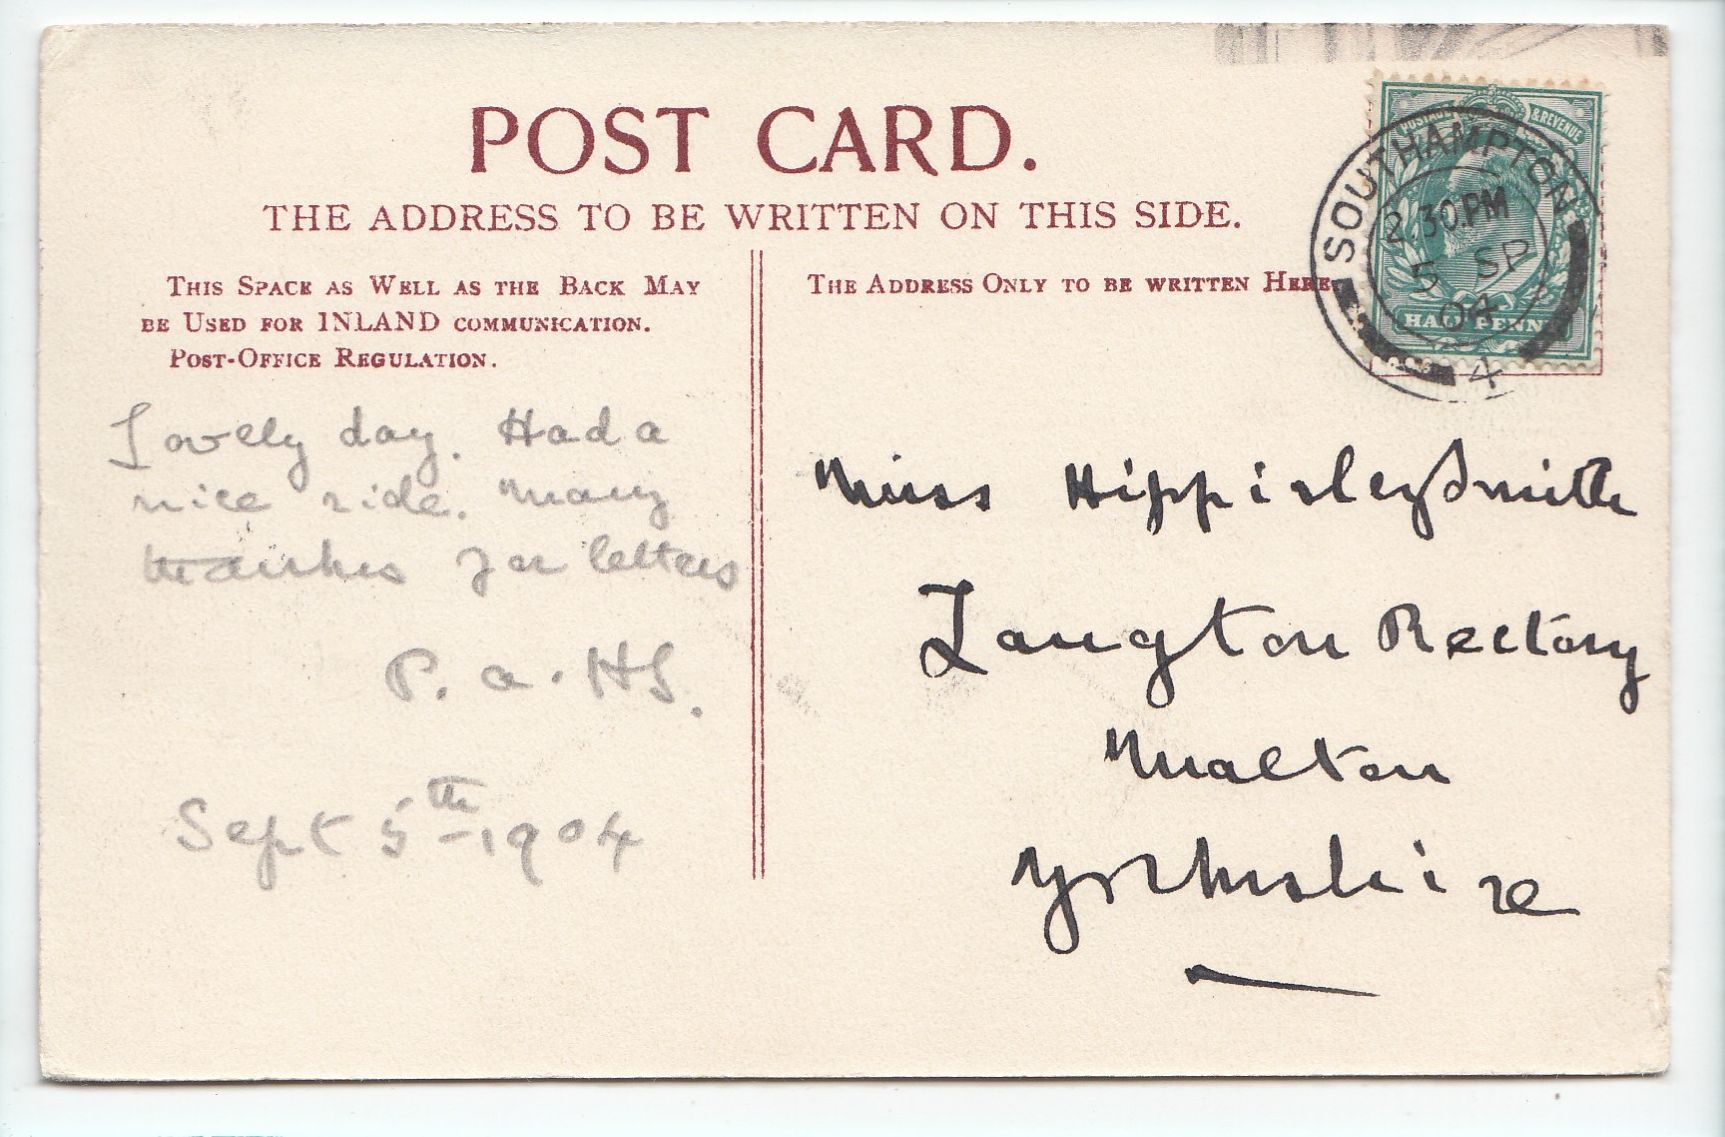 POST CARD.
THE ADDRESS TO BE WRITTEN ON THIS SIDE.
THIS SPACE AS WELL AS THE BACK MAY
BE USED FOR INLAND COMMUNICATION.
POST-OFFICE REGULATION.
THE ADDRESS ONLY TO BE WRITTEN HERE
POSTAGE & REVENUE
HALF PENNY
SOUTHAMPTON
2 30.PM
5 SP
04
4
Lovely day. Had a
nice ride. Many
thanks for letters
P. a. HS.
Sept 5th 1904
Miss Hippisley Smith
Langton Rectory
Malton
Yorkshire